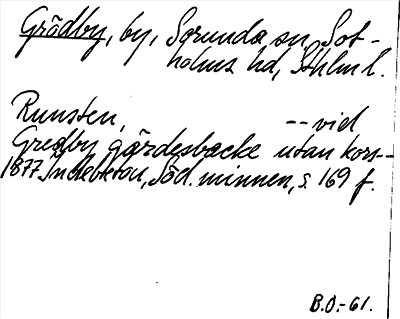 Grödby, by, Sorunda sn, Sot-
holms hd, Sthlm l.
Runsten, --vid
Gredby gärdesbacke utan kors--
1877 Indebetou, Söd. minnen, s. 169 f.
B.O.-61.